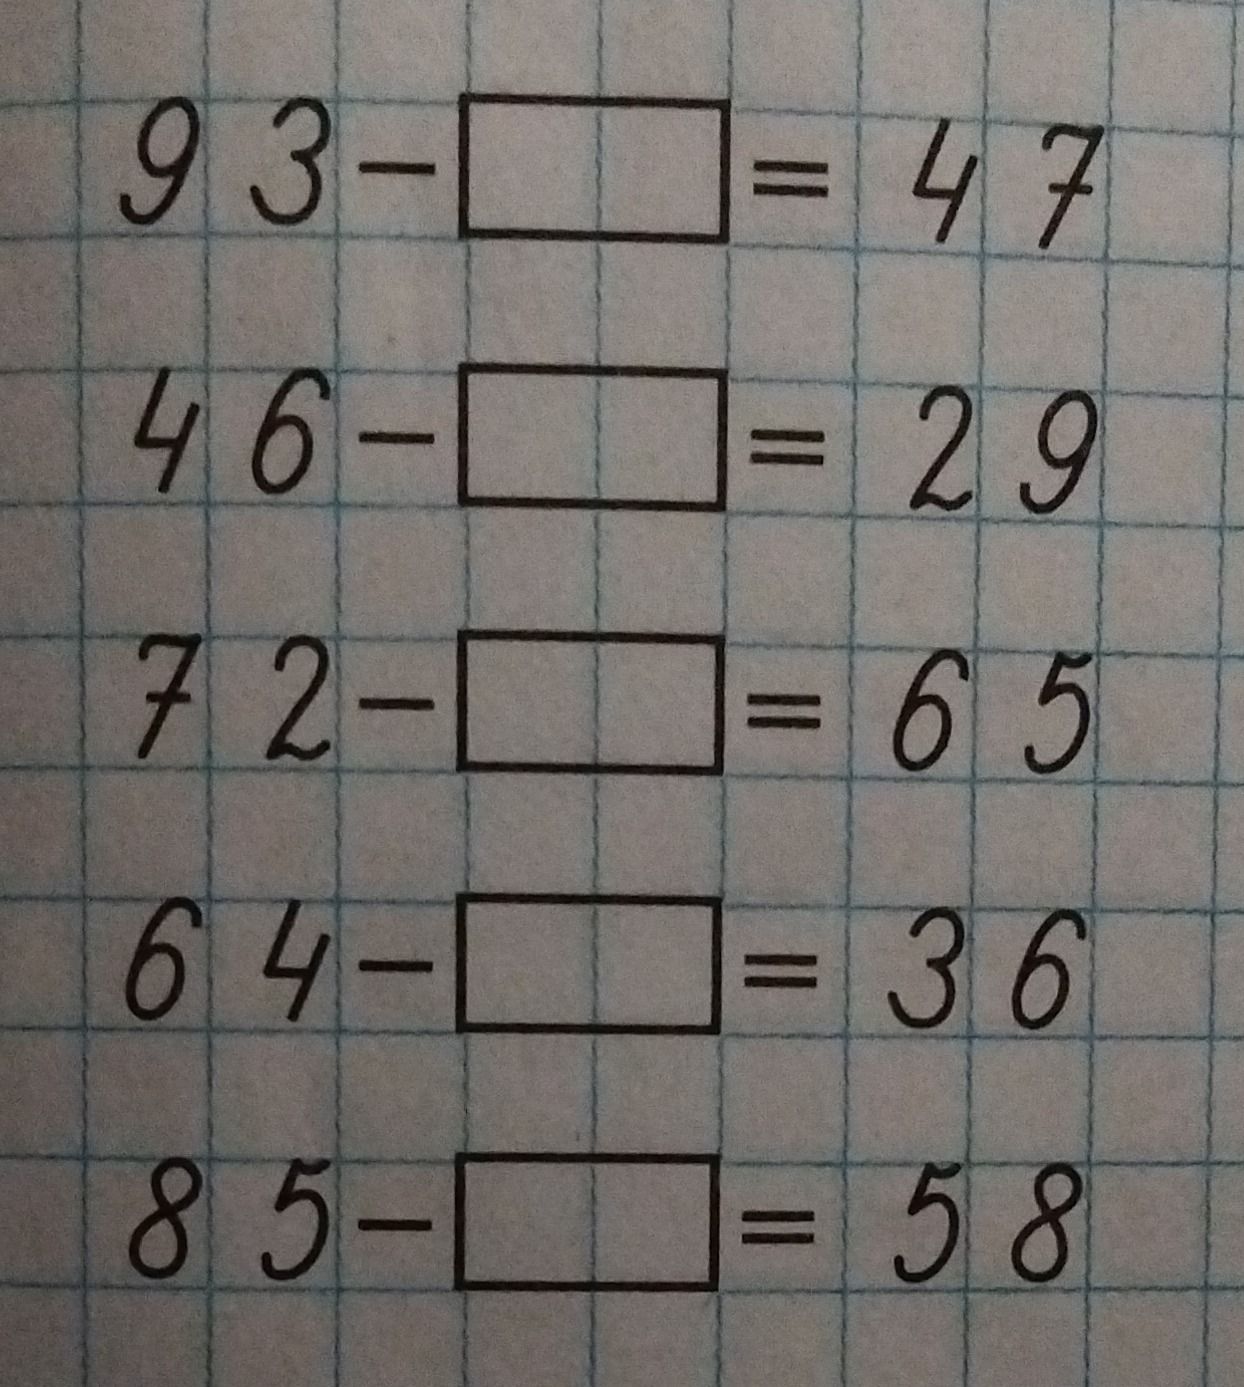 93-□=47
46-□=29
72-□=65
64-□=36
85-□=58